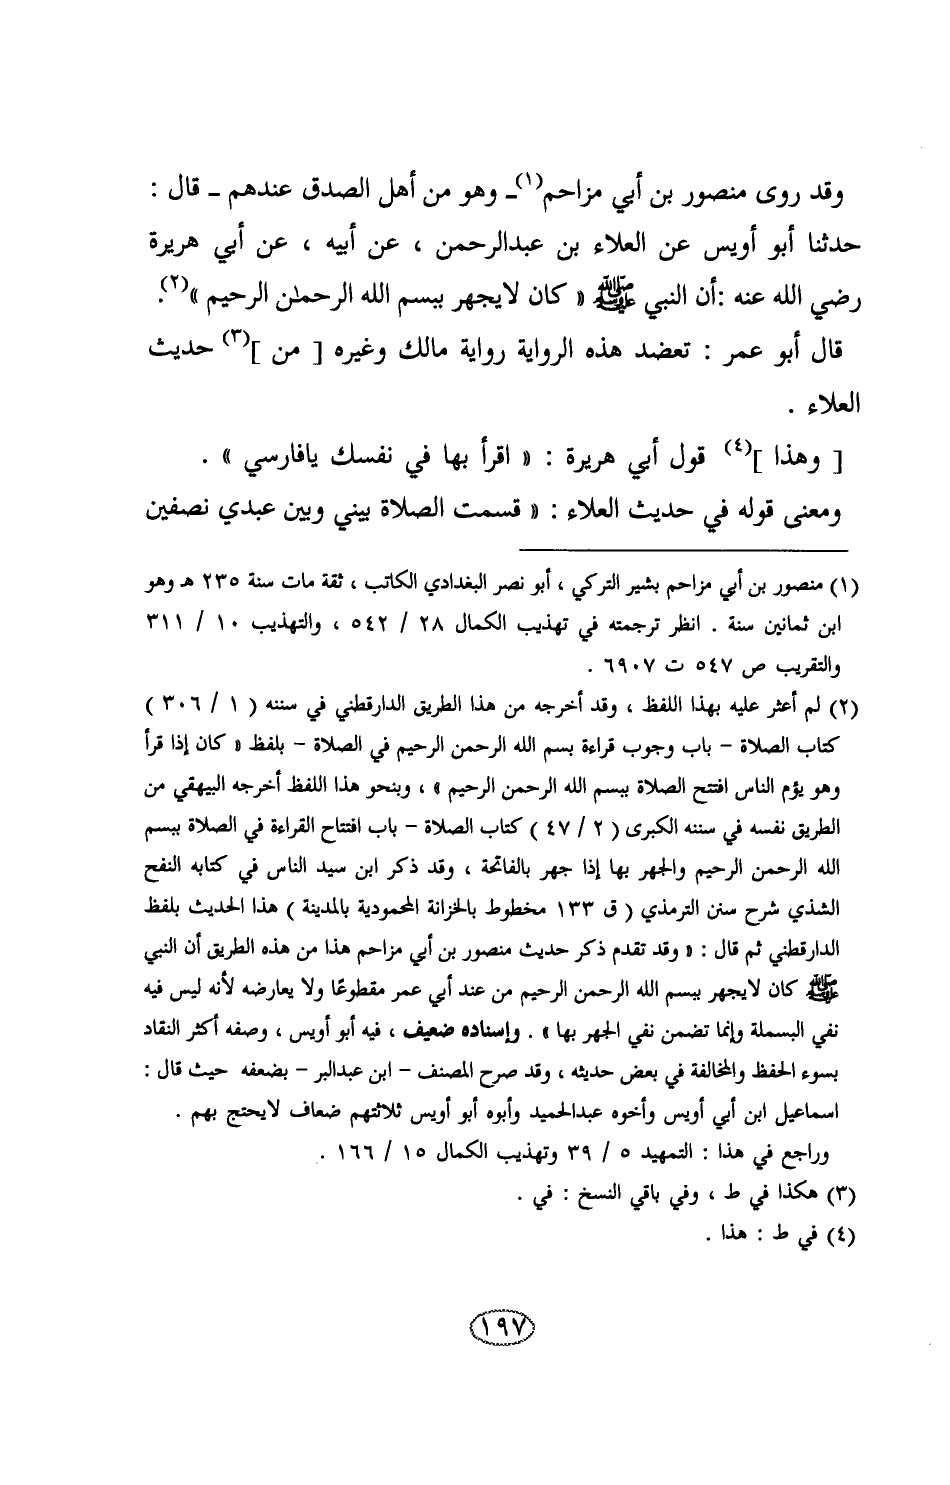 وقد روى منصور بن أبي مزاحم(١)ـ وهو من أهل الصدق عندهم ـ قال :
حدثنا أبو أويس عن العلاء بن عبدالرحمن ، عن أبيه ، عن أبي هريرة
رضي الله عنه :أن النبي ﷺ « كان لايجهر ببسم الله الرحمٰن الرحيم »(٢).
قال أبو عمر : تعضد هذه الرواية رواية مالك وغيره [ من ](٣) حديث
العلاء .
[ وهذا ](٤) قول أبي هريرة : « اقرأ بها في نفسك يافارسي » .
ومعنى قوله في حديث العلاء : « قسمت الصلاة بيني وبين عبدي نصفين
(١) منصور بن أبي مزاحم بشير التركي ، أبو نصر البغدادي الكاتب ، ثقة مات سنة ٢٣٥ هـ وهو
ابن ثمانين سنة . انظر ترجمته في تهذيب الكمال ٢٨ / ٥٤٢ ، والتهذيب ١٠ / ٣١١
والتقريب ص ٥٤٧ ت ٦٩٠٧ .
(٢) لم أعثر عليه بهذا اللفظ ، وقد أخرجه من هذا الطريق الدارقطني في سننه ( ١ / ٣٠٦ )
كتاب الصلاة – باب وجوب قراءة بسم الله الرحمن الرحيم في الصلاة – بلفظ « كان إذا قرأ
وهو يؤم الناس افتتح الصلاة ببسم الله الرحمن الرحيم » ، وبنحو هذا اللفظ أخرجه البيهقي من
الطريق نفسه في سننه الكبرى ( ٢ / ٤٧ ) كتاب الصلاة – باب افتتاح القراءة في الصلاة ببسم
الله الرحمن الرحيم والجهر بها إذا جهر بالفاتحة ، وقد ذكر ابن سيد الناس في كتابه النفح
الشذي شرح سنن الترمذي ( ق ١٣٣ مخطوط بالخزانة المحمودية بالمدينة ) هذا الحديث بلفظ
الدارقطني ثم قال : « وقد تقدم ذكر حديث منصور بن أبي مزاحم هذا من هذه الطريق أن النبي
ﷺ كان لايجهر ببسم الله الرحمن الرحيم من عند أبي عمر مقطوعًا ولا يعارضه لأنه ليس فيه
نفي البسملة وإنما تضمن نفي الجهر بها » . وإسناده ضعيف ، فيه أبو أويس ، وصفه أكثر النقاد
بسوء الحفظ والمخالفة في بعض حديثه ، وقد صرح المصنف – ابن عبدالبر – بضعفه حيث قال :
اسماعيل ابن أبي أويس وأخوه عبدالحميد وأبوه أبو أويس ثلاثتهم ضعاف لايحتج بهم .
وراجع في هذا : التمهيد ٥ / ٣٩ وتهذيب الكمال ١٥ / ١٦٦ .
(٣) هكذا في ط ، وفي باقي النسخ : في .
(٤) في ط : هذا .
١٩٧